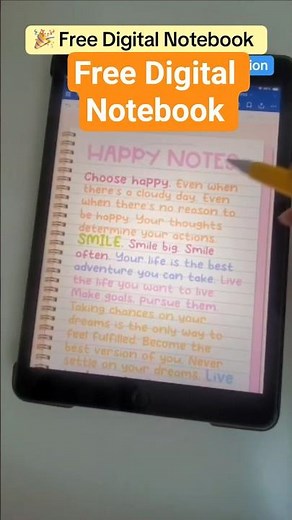 🎉 Free Digital Notebook
Free Digital
Notebook
HAPPY NOTES
Choose happy. Even when
there's a cloudy day. Even
when there's no reason to
be happy. Your thoughts
determine your actions.
SMILE. Smile big. Smile
often. Your life is the best
adventure you can take. Live
the life you want to live.
Make goals, pursue them.
Taking chances on your
dreams is the only way to
feel fulfilled. Become the
best version of you. Never
settle on your dreams. Live